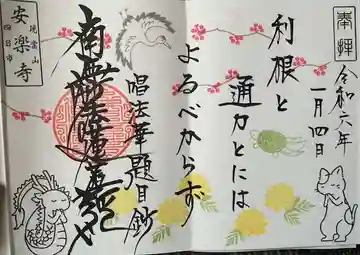 奉拝
令和六年
一月四日
利根と
通力とには
よるべからず
唱法華題目鈔
南無妙法蓮華経
安楽寺
晄雲山
四日市